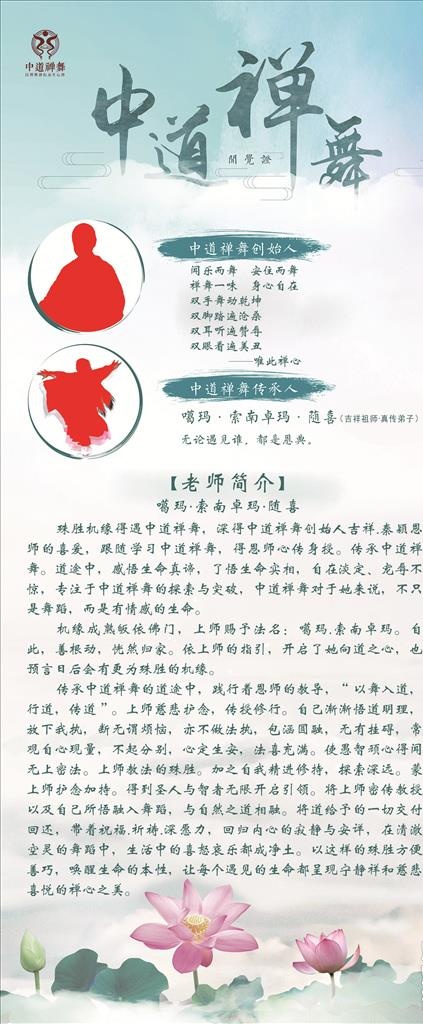 中道禅舞
中道禅舞
聞覺證
中道禅舞创始人
闻乐而舞 安住而舞
禅舞一味 身心自在
双手舞动乾坤
双脚踏遍沧桑
双耳听遍赞辱
双眼看遍美丑
——唯此禅心
中道禅舞传承人
噶玛·索南卓玛·随喜（吉祥祖师·真传弟子）
无论遇见谁，都是恩典。
【老师简介】
噶玛·索南卓玛·随喜
殊胜机缘得遇中道禅舞，深得中道禅舞创始人吉祥.秦颖恩
师的喜爱，跟随学习中道禅舞，得恩师心传身授。传承中道禅
舞。道途中，感悟生命真谛，了悟生命实相，自在淡定、宠辱不
惊，专注于中道禅舞的探索与突破，中道禅舞对于她来说，不只
是舞蹈，而是有情感的生命。
机缘成熟皈依佛门，上师赐予法名：噶玛.索南卓玛。自
此，善根动，恍然归家。依上师的指引，开启了她向道之心，也
预言日后会有更为殊胜的机缘。
传承中道禅舞的道途中，践行着恩师的教导，“以舞入道，
行道，传道”。上师慈悲护念，传授修行。自己渐渐悟道明理，
放下我执，断无谓烦恼，亦不做法执，包涵圆融，无有挂碍，常
观自心现量，不起分别，心定生安，法喜充满。使愚智顽心得闻
无上密法。上师教法的殊胜。加之自我精进修持，探索深远。蒙
上师护念加持。得到圣人与智者无限开启引领。将上师密传教授
以及自己所悟融入舞蹈，与自然之道相融。将道给予的一切交付
回还，带着祝福.祈祷.深愿力，回归内心的寂静与安详，在清澈
空灵的舞蹈中，生活中的喜怒哀乐都成净土。以这样的殊胜方便
善巧，唤醒生命的本性，让每个遇见的生命都呈现宁静祥和慈悲
喜悦的禅心之美。